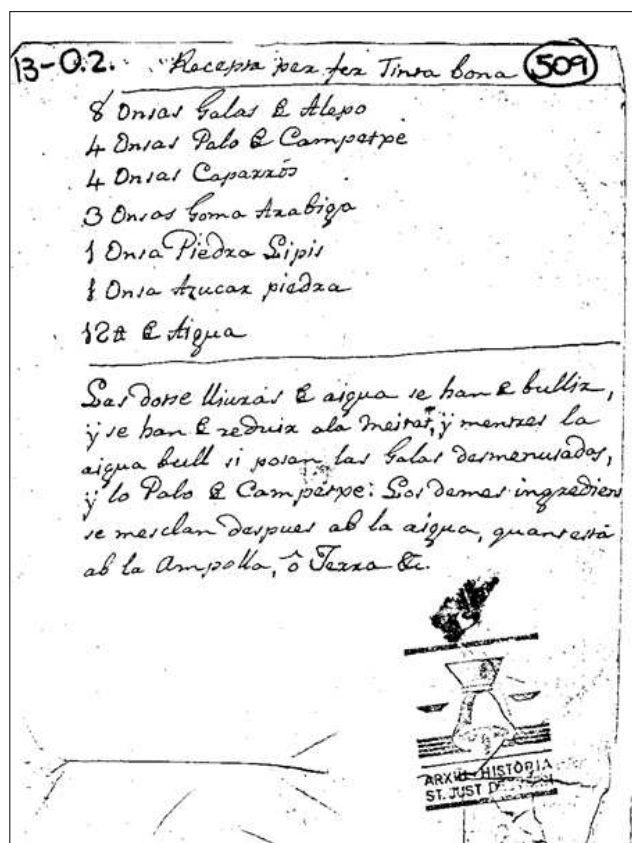 13-O.2. Recepta per fer Tinta bona 509
8 Onsas Galas de Alepo
4 Onsas Palo de Campetxe
4 Onsas Caparrós
3 Onsas Goma Arabiga
1 Onsa Piedra Lipis
1 Onsa Azucar piedra
12 ₶ de Aigua
Las dotse lliuras de aigua se han de bullir,
ÿ se han de reduir ala meitat, ÿ mentres la
aigua bull si posan las Galas desmenusadas,
ÿ lo Palo de Campetxe: Los demes ingrediens
se mesclan despues ab la aigua, quant está
ab la Ampolla, ô Terra &c.
ARXIU HISTORIA
ST. JUST